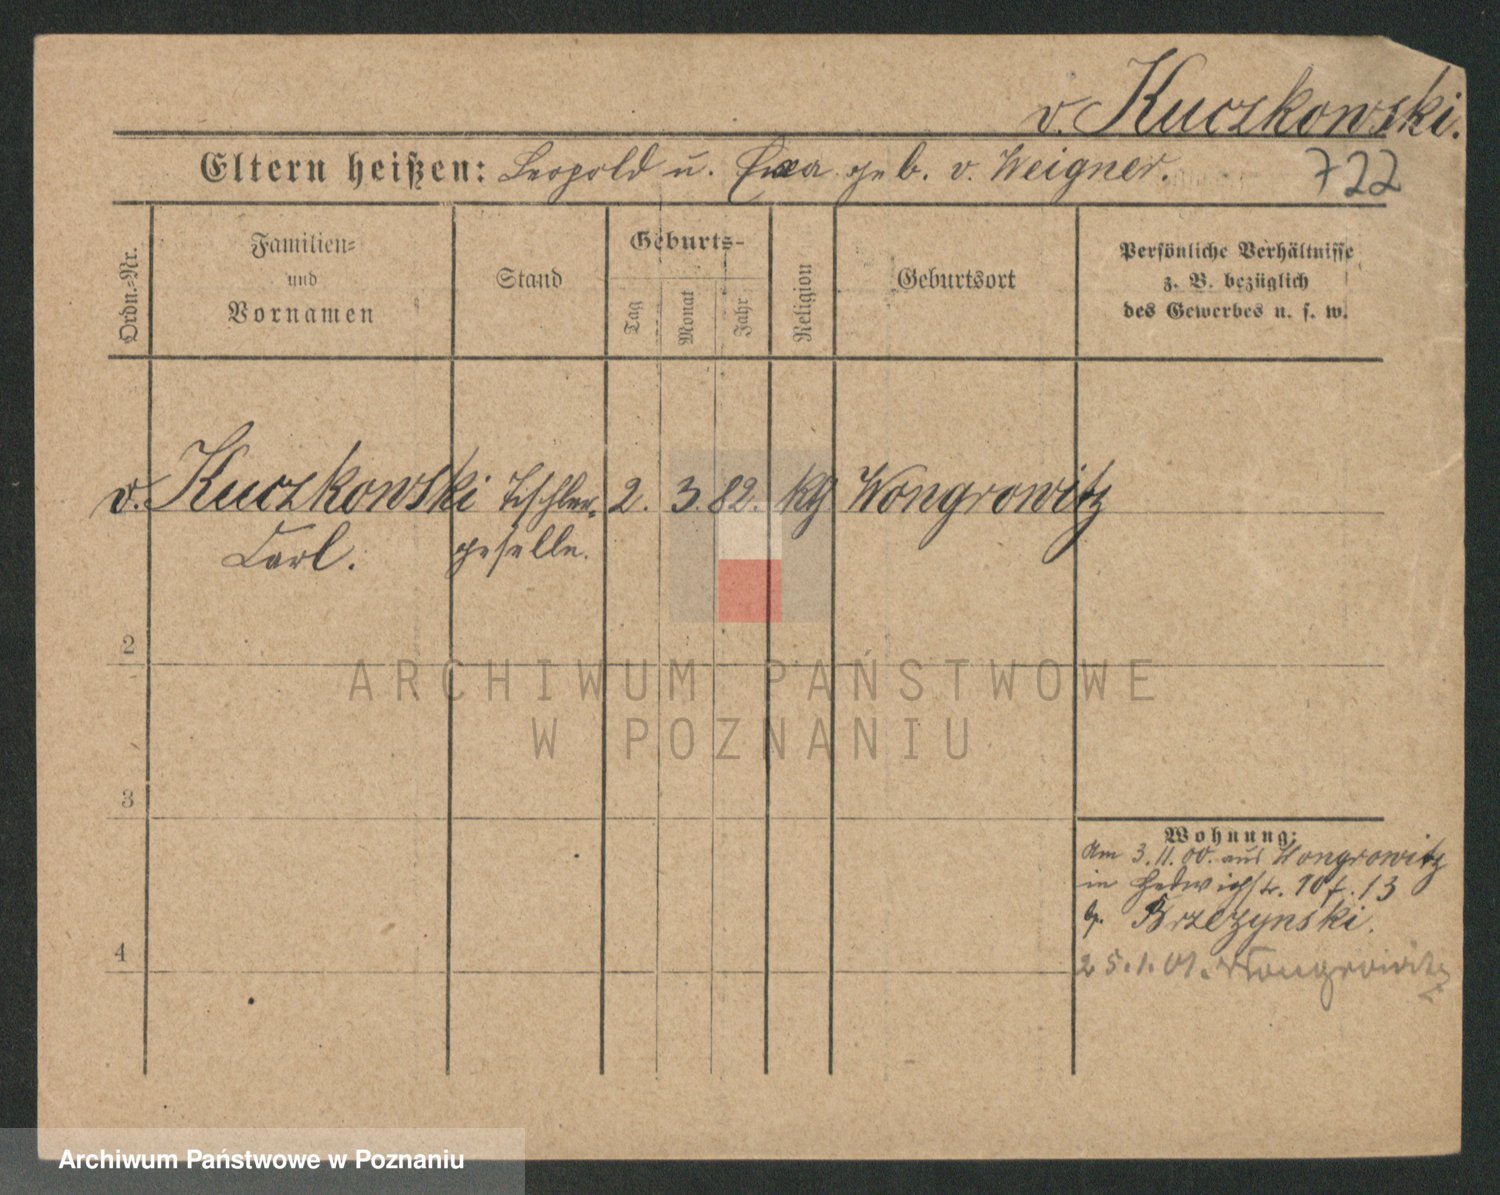 v. Kuczkowski.
Eltern heißen: Leopold u. Eva geb. v. Weigner.
722
Ordn.-Nr.
Familien-
und
Vornamen
Stand
Geburts-
Tag
Monat
Jahr
Religion
Geburtsort
Persönliche Verhältnisse
z. B. bezüglich
des Gewerbes u. s. w.
v. Kuczkowski Tischler- 2. 3. 82. kth Wongrowitz
Carl. geselle.
2
3
4
Wohnung:
Am 3.11.00. aus Wongrowitz
in Hedwigstr. 13
b. Brzezynski.
25.1.01. Wongrowitz
ARCHIWUM PAŃSTWOWE
W POZNANIU
Archiwum Państwowe w Poznaniu